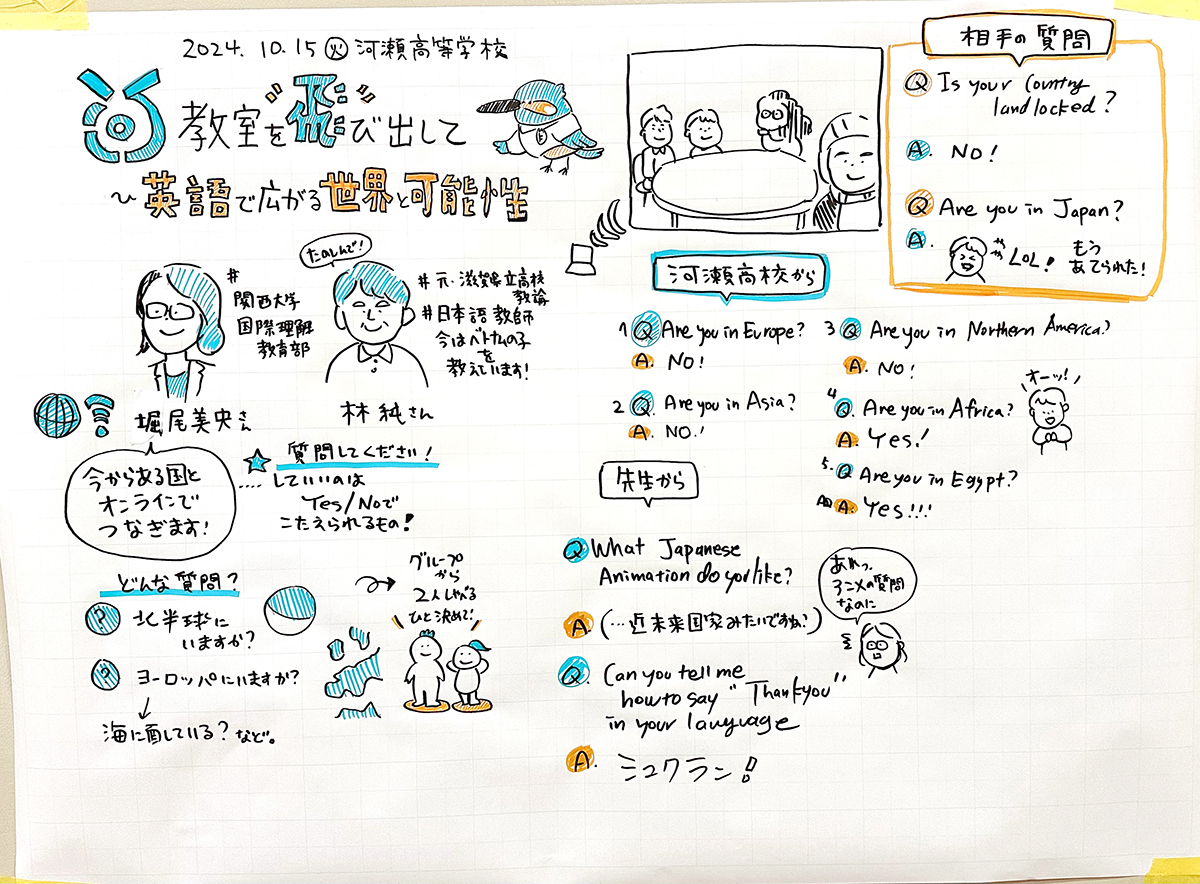 2024.10.15 火 河瀬高等学校
教室を飛び出して
〜英語で広がる世界と可能性
たのしんで!
#
関西大学
国際理解
教育部
堀尾美央さん
#元・滋賀県立高校
教諭
#日本語教師
今はベトナムの子
を
教えています!
林 純さん
今からある国と
オンラインで
つなぎます!
質問してください!
....していいのは
Yes/Noで
こたえられるもの!
どんな質問?
? 北半球に
いますか?
? ヨーロッパにいますか?
海に面している?など。
グループ
から
2人しゃべる
ひと決めて!
相手の質問
Q Is your Country
landlocked?
A. NO!
Q Are you in Japan?
A.
LOL!
もう
あてられた!
河瀬高校から
1 Q Are you in Europe?
A. NO!
2 Q. Are you in Asia?
A. NO.!
3 Q Are you in Northern America?
A. NO!
4 Q. Are you in Africa?
A. Yes!
オーッ!
5. Q Are you in Egypt?
A. Yes!!!
先生から
Q What Japanese
Animation do you like?
A. (…近未来国家みたいですね?)
あれっ、
アニメの質問
なのに
Q. Can you tell me
how to say "Thank you"
in your language
A. ミュクラン!